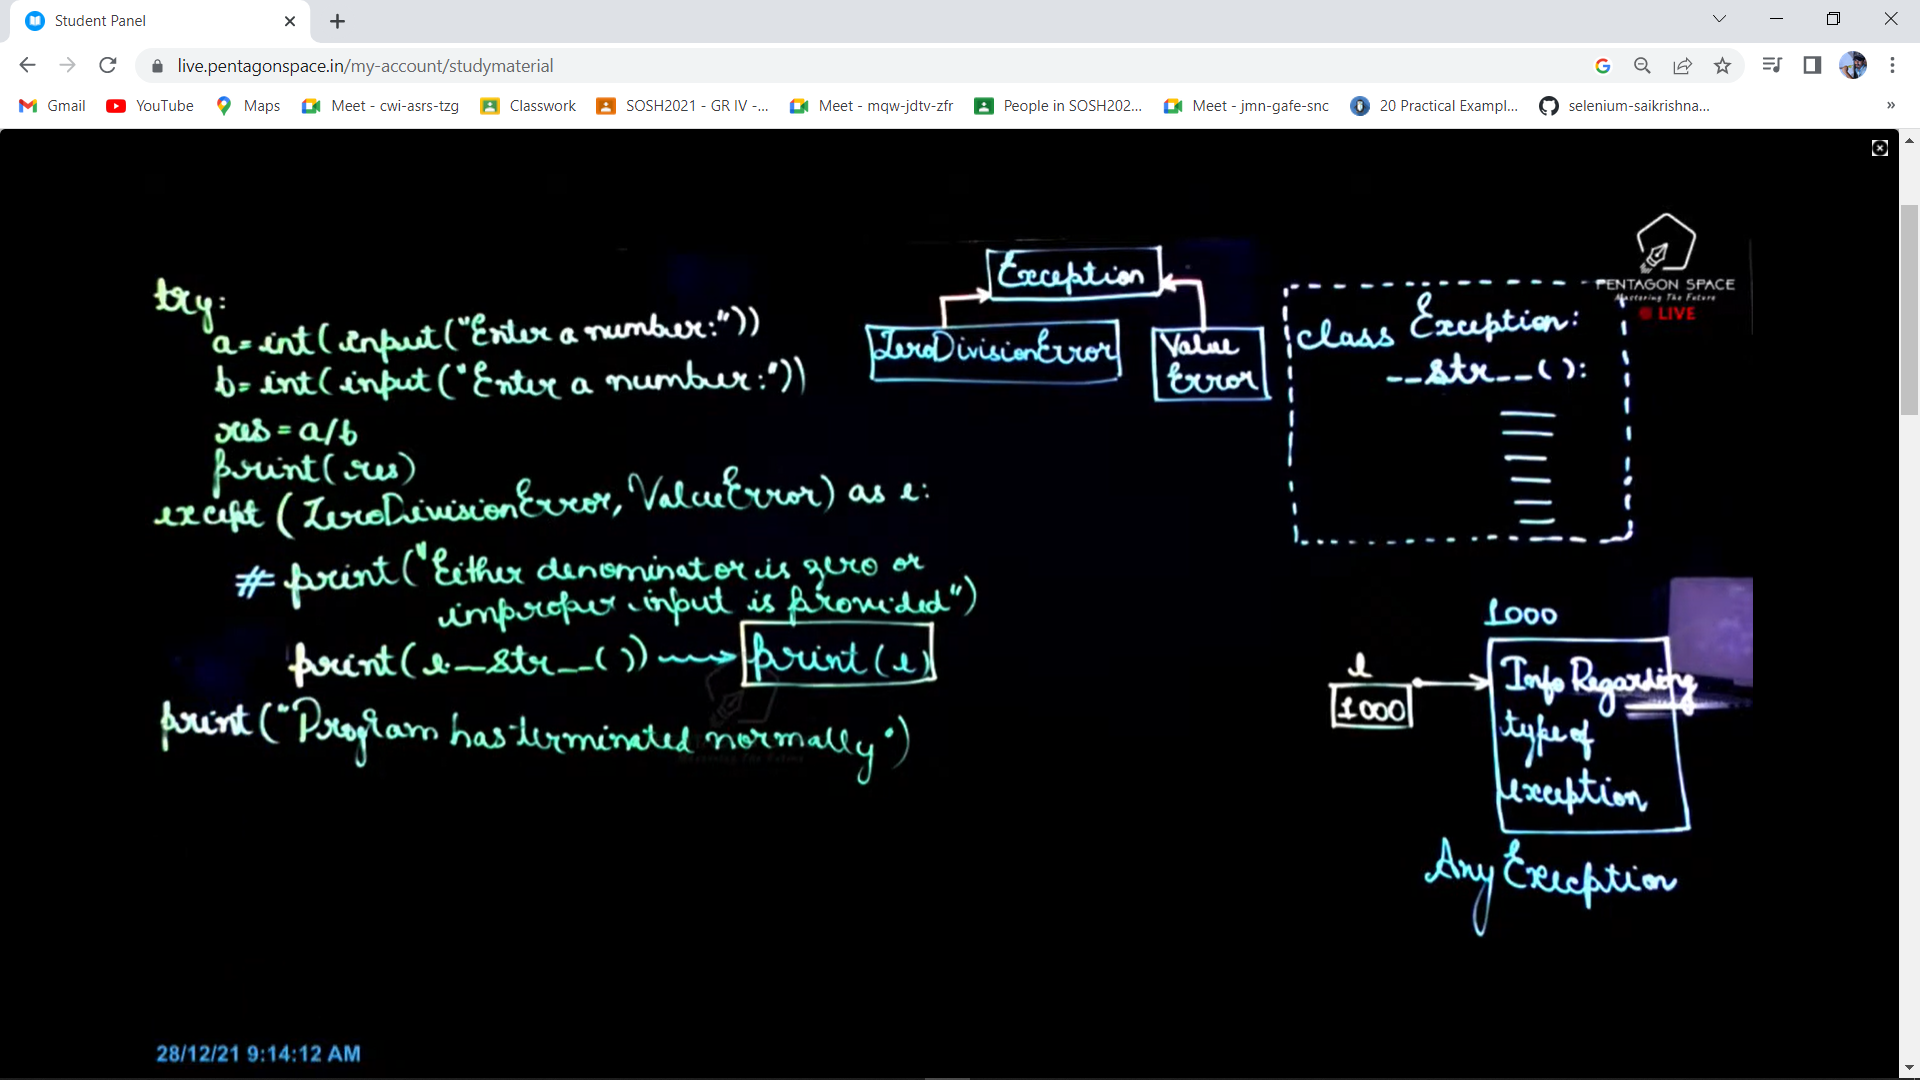 Student Panel
live.pentagonspace.in/my-account/studymaterial
Gmail YouTube Maps Meet - cwi-asrs-tzg Classwork SOSH2021 - GR IV -... Meet - mqw-jdtv-zfr People in SOSH202... Meet - jmn-gafe-snc 20 Practical Exampl... selenium-saikrishna... »
try:
a=int(input("Enter a number:"))
b=int(input("Enter a number:"))
res=a/b
print(res)
except (ZeroDivisionError, ValueError) as e:
# print("Either denominator is zero or
improper input is provided")
print(e.__str__()) print(e)
print("Program has terminated normally")
Exception
ZeroDivisionError
Value
Error
PENTAGON SPACE
Mastering The Future
LIVE
class Exception:
__str__():
1000
e
1000
Info Regarding
type of
exception
Any Exception
Mastering The Future
28/12/21 9:14:12 AM